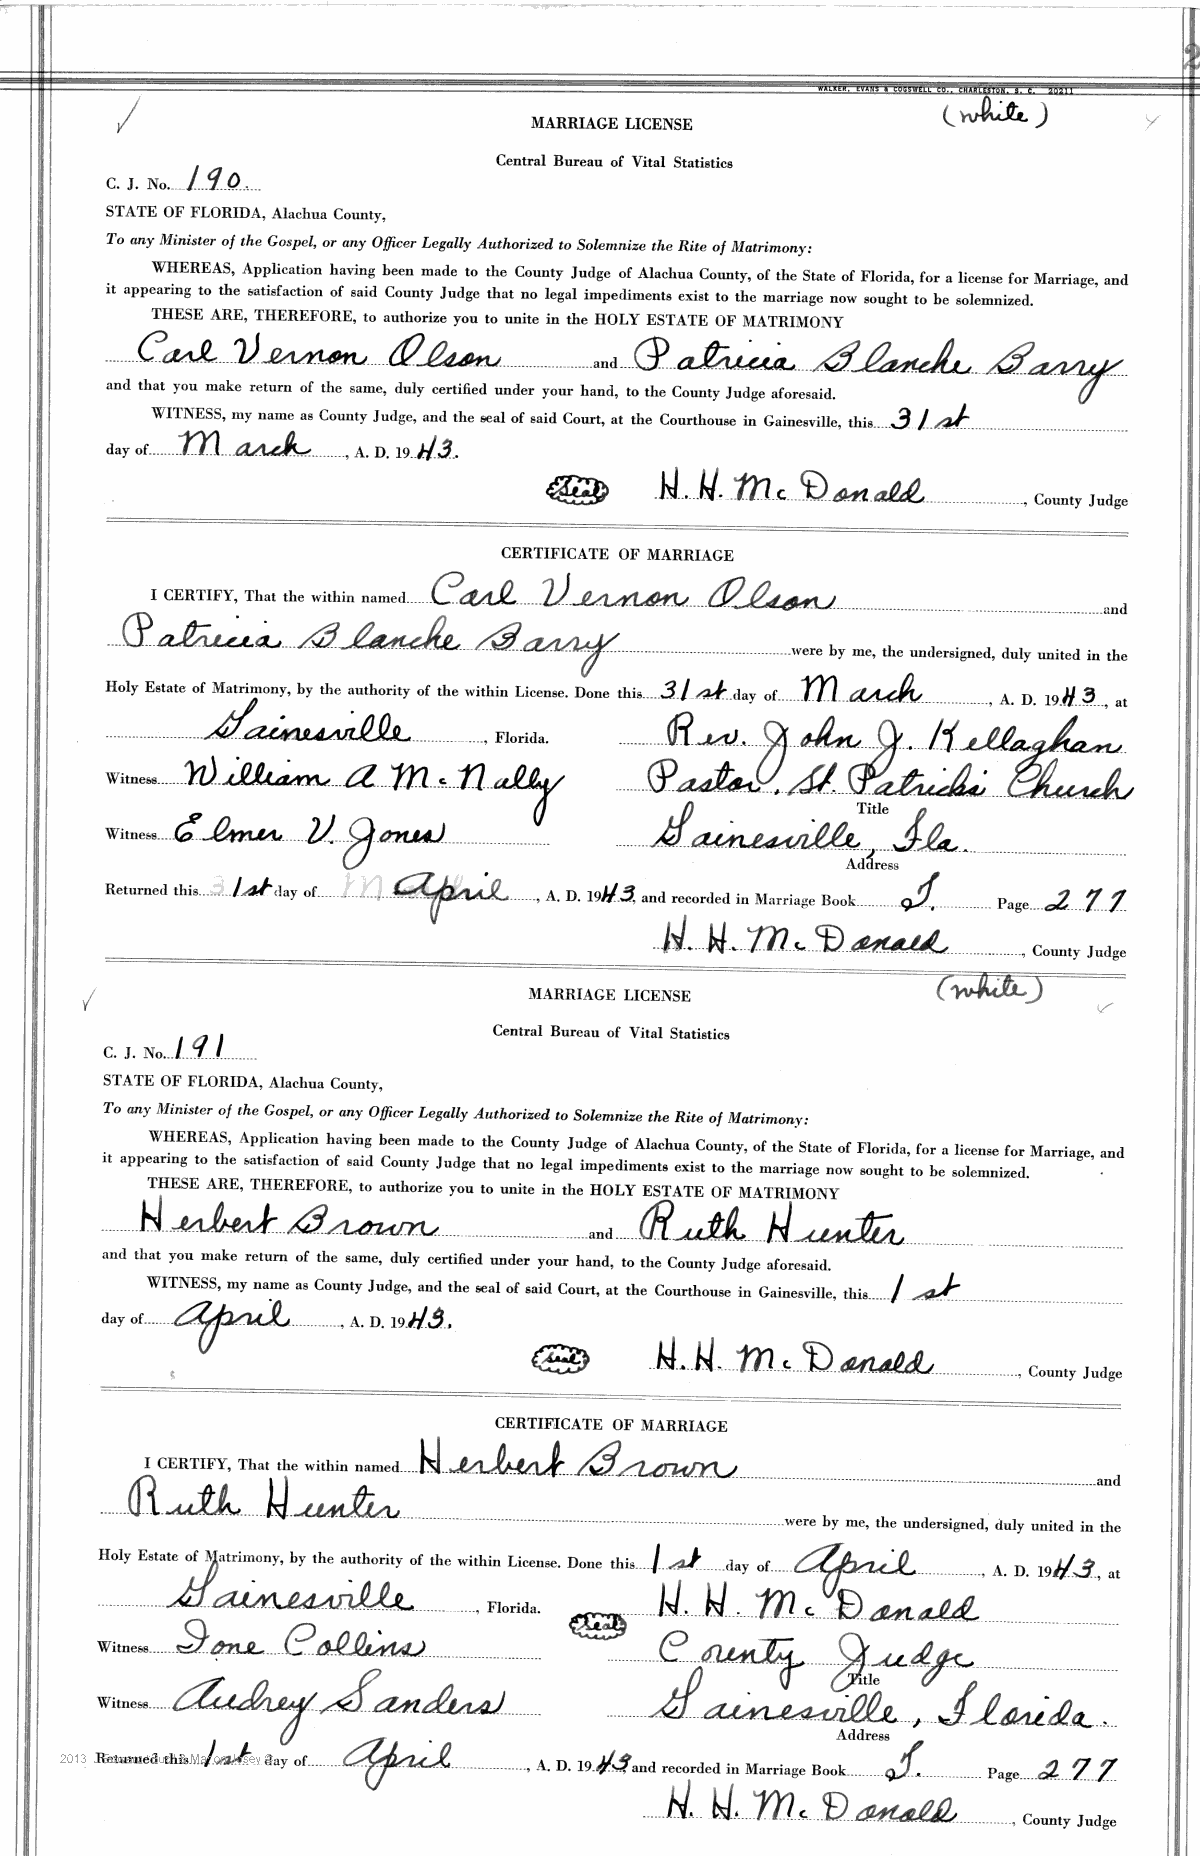 WALKER, EVANS & COGSWELL CO., CHARLESTON, S. C. 20211
(white)
MARRIAGE LICENSE
Central Bureau of Vital Statistics
C. J. No. 190.
STATE OF FLORIDA, Alachua County,
To any Minister of the Gospel, or any Officer Legally Authorized to Solemnize the Rite of Matrimony:
WHEREAS, Application having been made to the County Judge of Alachua County, of the State of Florida, for a license for Marriage, and
it appearing to the satisfaction of said County Judge that no legal impediments exist to the marriage now sought to be solemnized.
THESE ARE, THEREFORE, to authorize you to unite in the HOLY ESTATE OF MATRIMONY
Carl Vernon Olson and Patricia Blanche Barry
and that you make return of the same, duly certified under your hand, to the County Judge aforesaid.
WITNESS, my name as County Judge, and the seal of said Court, at the Courthouse in Gainesville, this 31st
day of March, A. D. 1943.
Seal H. H. McDonald, County Judge
CERTIFICATE OF MARRIAGE
I CERTIFY, That the within named Carl Vernon Olson and
Patricia Blanche Barry were by me, the undersigned, duly united in the
Holy Estate of Matrimony, by the authority of the within License. Done this 31st day of March, A. D. 1943, at
Gainesville, Florida. Rev. John J. Kellaghan
Witness William A McNally Pastor, St. Patricks Church
Title
Witness Elmer V. Jones Gainesville, Fla.
Address
Returned this 1st day of April, A. D. 1943, and recorded in Marriage Book T. Page 277
H. H. McDonald, County Judge
(white)
MARRIAGE LICENSE
Central Bureau of Vital Statistics
C. J. No. 191
STATE OF FLORIDA, Alachua County,
To any Minister of the Gospel, or any Officer Legally Authorized to Solemnize the Rite of Matrimony:
WHEREAS, Application having been made to the County Judge of Alachua County, of the State of Florida, for a license for Marriage, and
it appearing to the satisfaction of said County Judge that no legal impediments exist to the marriage now sought to be solemnized.
THESE ARE, THEREFORE, to authorize you to unite in the HOLY ESTATE OF MATRIMONY
Herbert Brown and Ruth Hunter
and that you make return of the same, duly certified under your hand, to the County Judge aforesaid.
WITNESS, my name as County Judge, and the seal of said Court, at the Courthouse in Gainesville, this 1st
day of April, A. D. 1943.
Seal H. H. McDonald, County Judge
CERTIFICATE OF MARRIAGE
I CERTIFY, That the within named Herbert Brown and
Ruth Hunter were by me, the undersigned, duly united in the
Holy Estate of Matrimony, by the authority of the within License. Done this 1st day of April, A. D. 1943, at
Gainesville, Florida. Seal H. H. McDonald
Witness Ione Collins County Judge
Title
Witness Audrey Sanders Gainesville, Florida.
Address
2013
Returned this 1st day of April, A. D. 1943, and recorded in Marriage Book T. Page 277
H. H. McDonald, County Judge